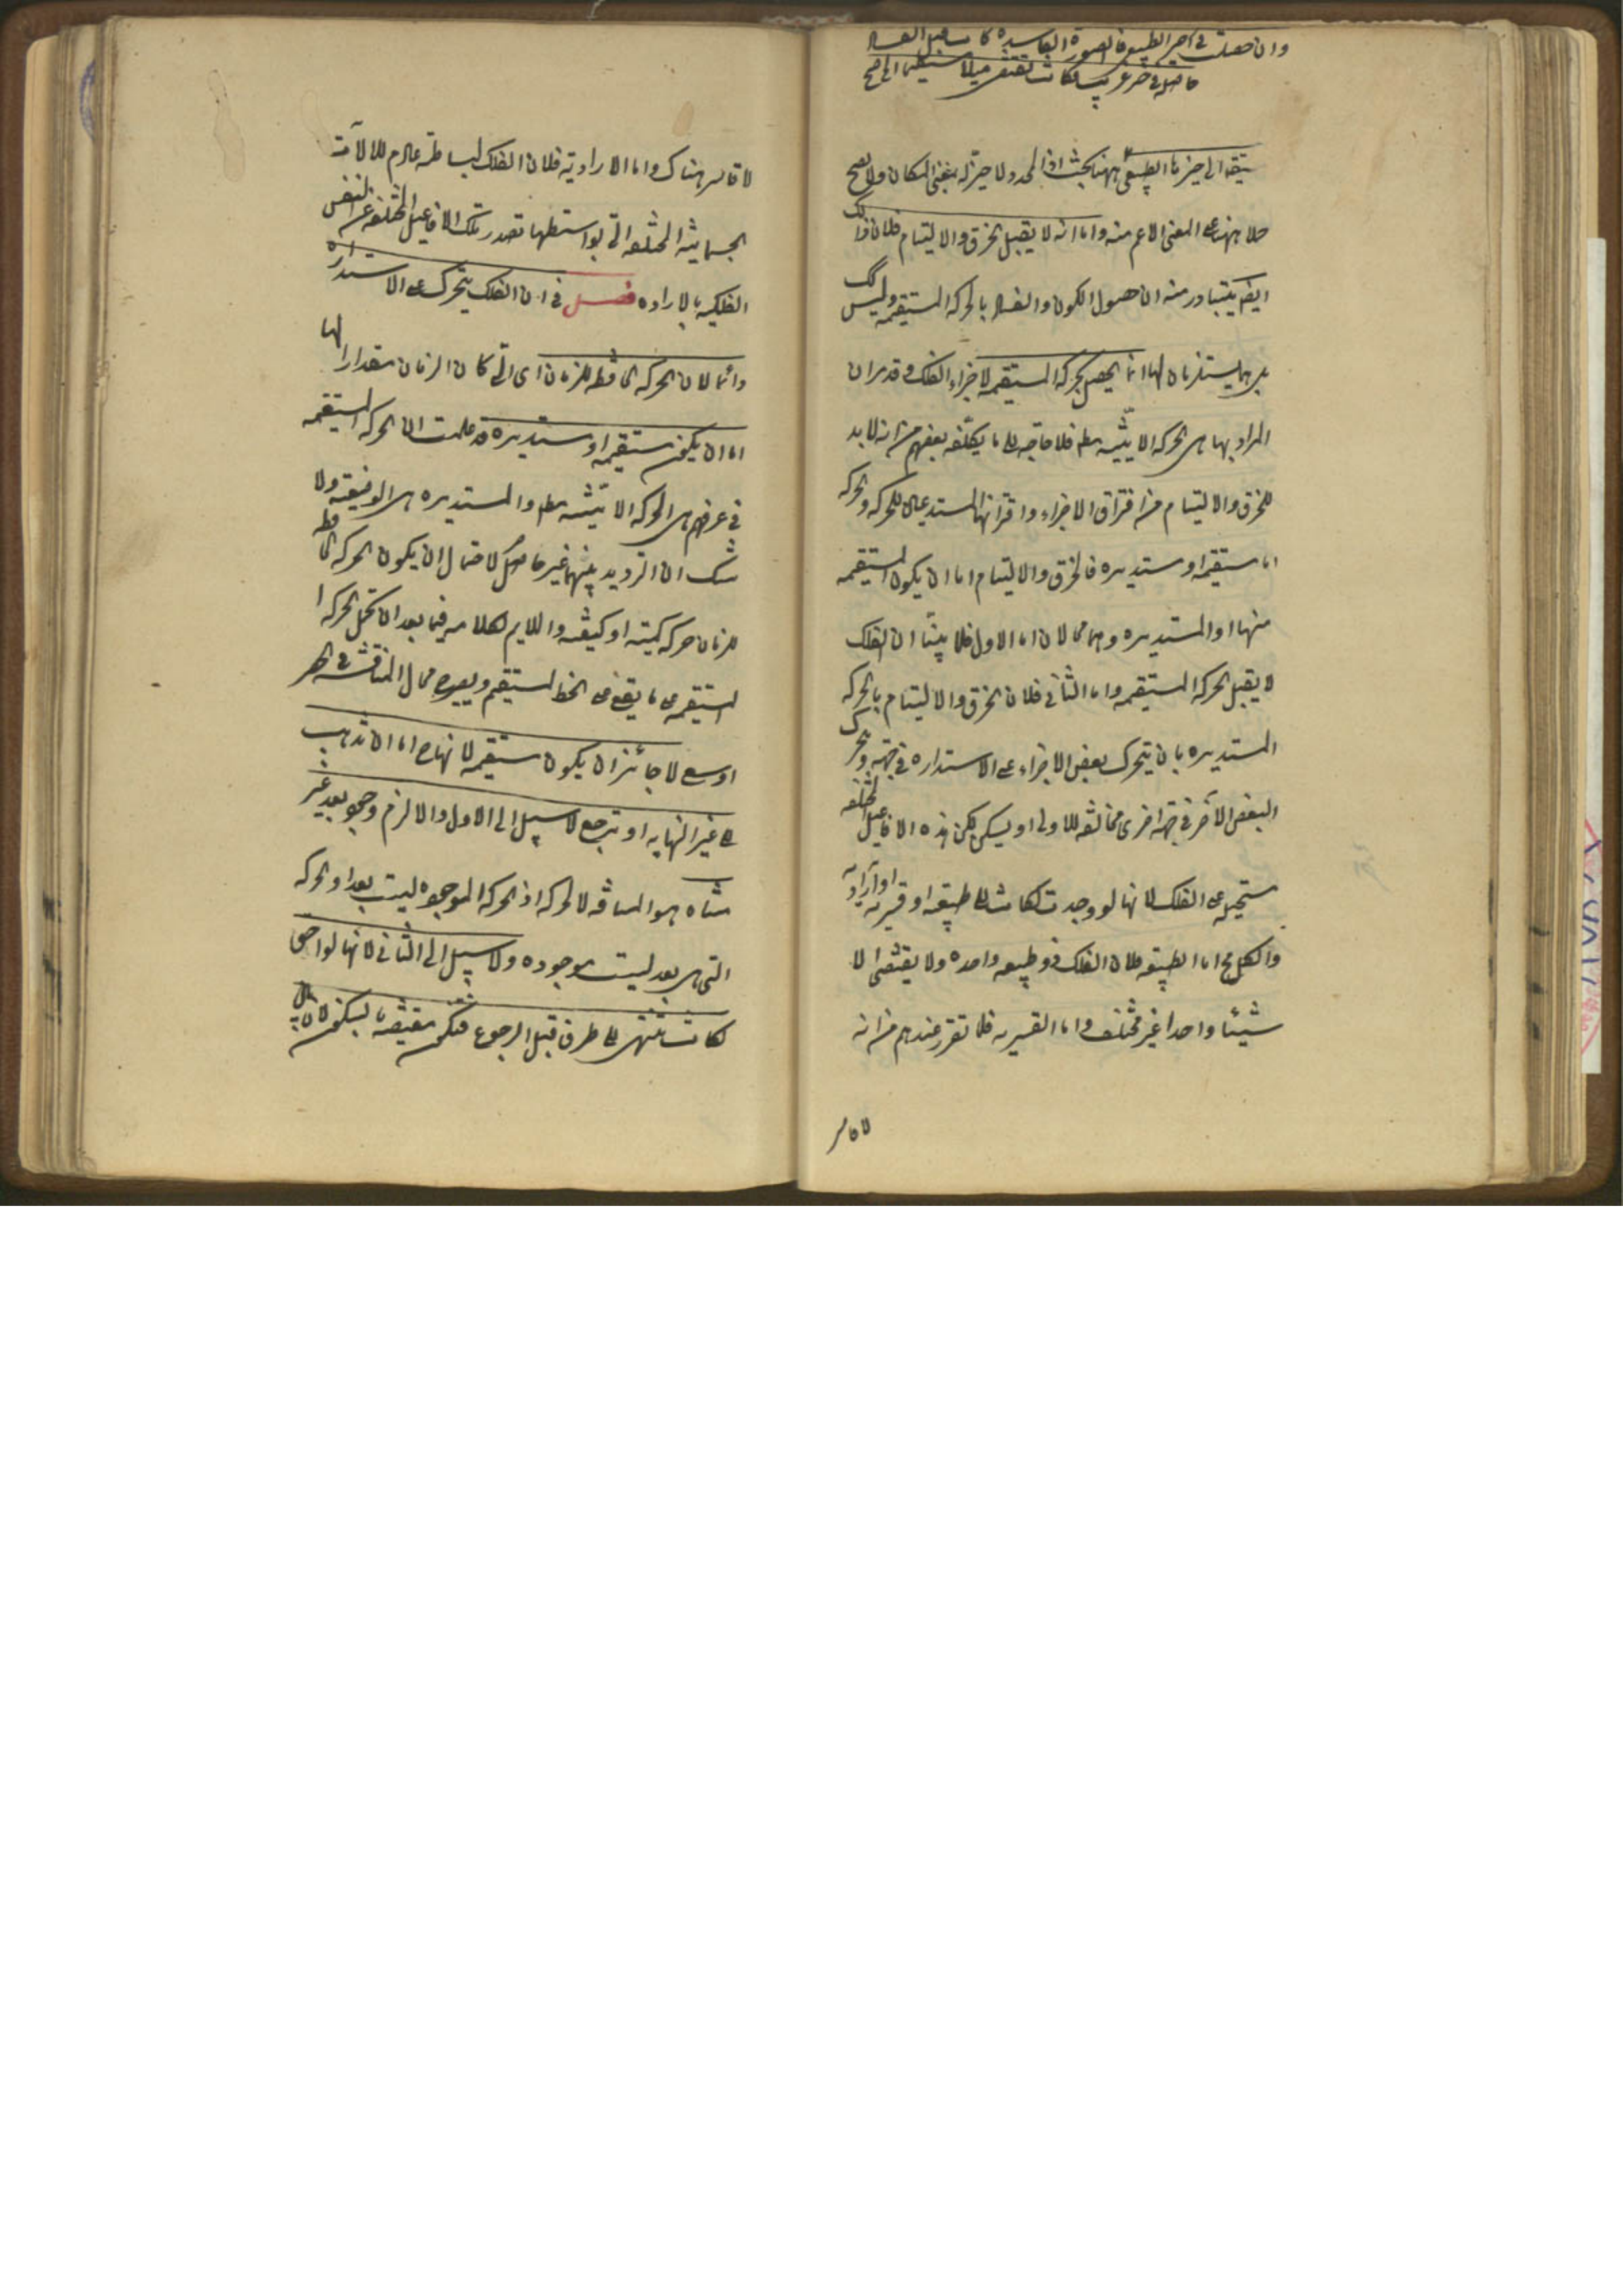 وان حصلت في الحيز الطبيعي فالصورة الفاسدة كانت قبل الفساد
حاصلة في حيز غريب لكانت تقتضي ميلا مستقيما الى حيزها
مستقيما الى حيزها الطبيعي ههنا بحث اذ المحدد لا حيز له بمعنى المكان ولا يصح
حمله ههنا على المعنى الاعم منه واما انه لا يقبل الخرق والالتيام فلان ذلك
ايضا يتبادر منه ان حصول الكون والفساد بالحركة المستقيمة وليس كك
بل هما يستلزمان لها انما يحصل بحركة المستقيمة لاجزاء الفلك وقد مر ان
المراد بها هي الحركة الاينية مطم فلا حاجة الى ما يكلفه بعضهم من انه لابد
للخرق والالتيام من افتراق الاجزاء واقترانها المستدعيان للحركة والحركة
اما مستقيمة او مستديره فالخرق والالتيام اما ان يكون المستقيمة
منها او المستديره وهما محالان اما الاول فلما بينا ان الفلك
لا يقبل الحركة المستقيمة واما الثاني فلان الخرق والالتيام بالحركة
المستديره بان يتحرك بعض الاجزاء على الاستدارة في جهة ويتحرك
البعض الآخر في جهة اخرى مخالفة للاولى او يسكن لكن هذه الافاعيل المختلفة
مستحيلة على الفلك لانها لو وجدت لكانت اما طبيعية او قسرية او ارادية
والكل مح اما الطبيعية فلان الفلك ذو طبيعة واحدة ولا يقتضي الا
شيئا واحدا غير مختلف واما القسرية فلما تقرر عندهم من انه
لا قاسر
لا قاسر هناك واما الارادية فلان الفلك لبساطته عادم للآلات
الجسمانية المختلفة التي بواسطتها تصدر تلك الافاعيل المختلفة عن النفس
الفلكية بالارادة فصل في ان الفلك يتحرك على الاستدارة
دائما لان الحركة الحافظة للزمان اي التي كان الزمان مقدارا لها
اما ان يكون مستقيمة او مستديره قد علمت ان الحركة المستقيمة
في عرفهم هي الحركة الاينية مطم والمستديره هي الوضعية ولا
شك ان الترديد بينهما غير حاصر لاحتمال ان يكون الحركة الحافظة
للزمان حركة كمية او كيفية والملايم لكلامه فيما بعد ان تحمل الحركة ا
لمستقيمة على ما يقع على الخط المستقيم ويصير مجال المناقشة في الحصر
اوسع لا جائز ان يكون مستقيمة لانها ح اما ان تذهب
الى غير النهاية او ترجع لا سبيل الى الاول والا لزم وجود بعد غير
متناه هو المسافة لا الحركة اذ الحركة الموجودة ليست بعدا والحركة
التي هي بعد ليست موجودة ولا سبيل الى الثاني لانها لو رجعت
لكانت تنتهي الى طرف قبل الرجوع فتكون مقتضية بالسكون لان